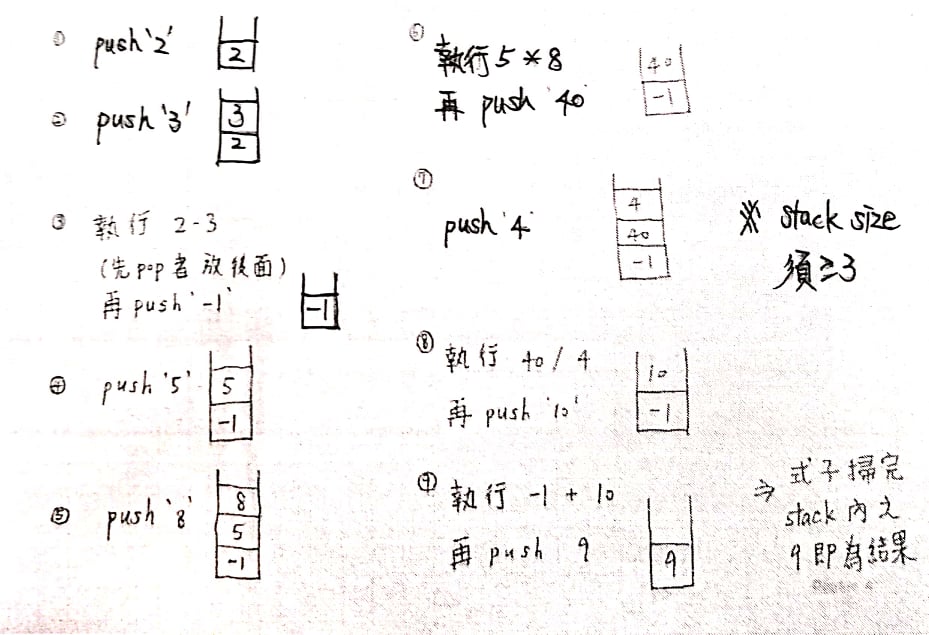 ① push '2'
2
② push '3'
3
2
③ 執行 2-3
(先pop者放後面)
再 push '-1'
-1
④ push '5'
5
-1
⑤ push '8'
8
5
-1
⑥ 執行 5 * 8
再 push '40'
40
-1
⑦
push '4'
4
40
-1
※ stack size
須≥3
⑧ 執行 40 / 4
再 push '10'
10
-1
⑨ 執行 -1 + 10
再 push 9
9
⇒ 式子掃完
stack 內之
9 即為結果